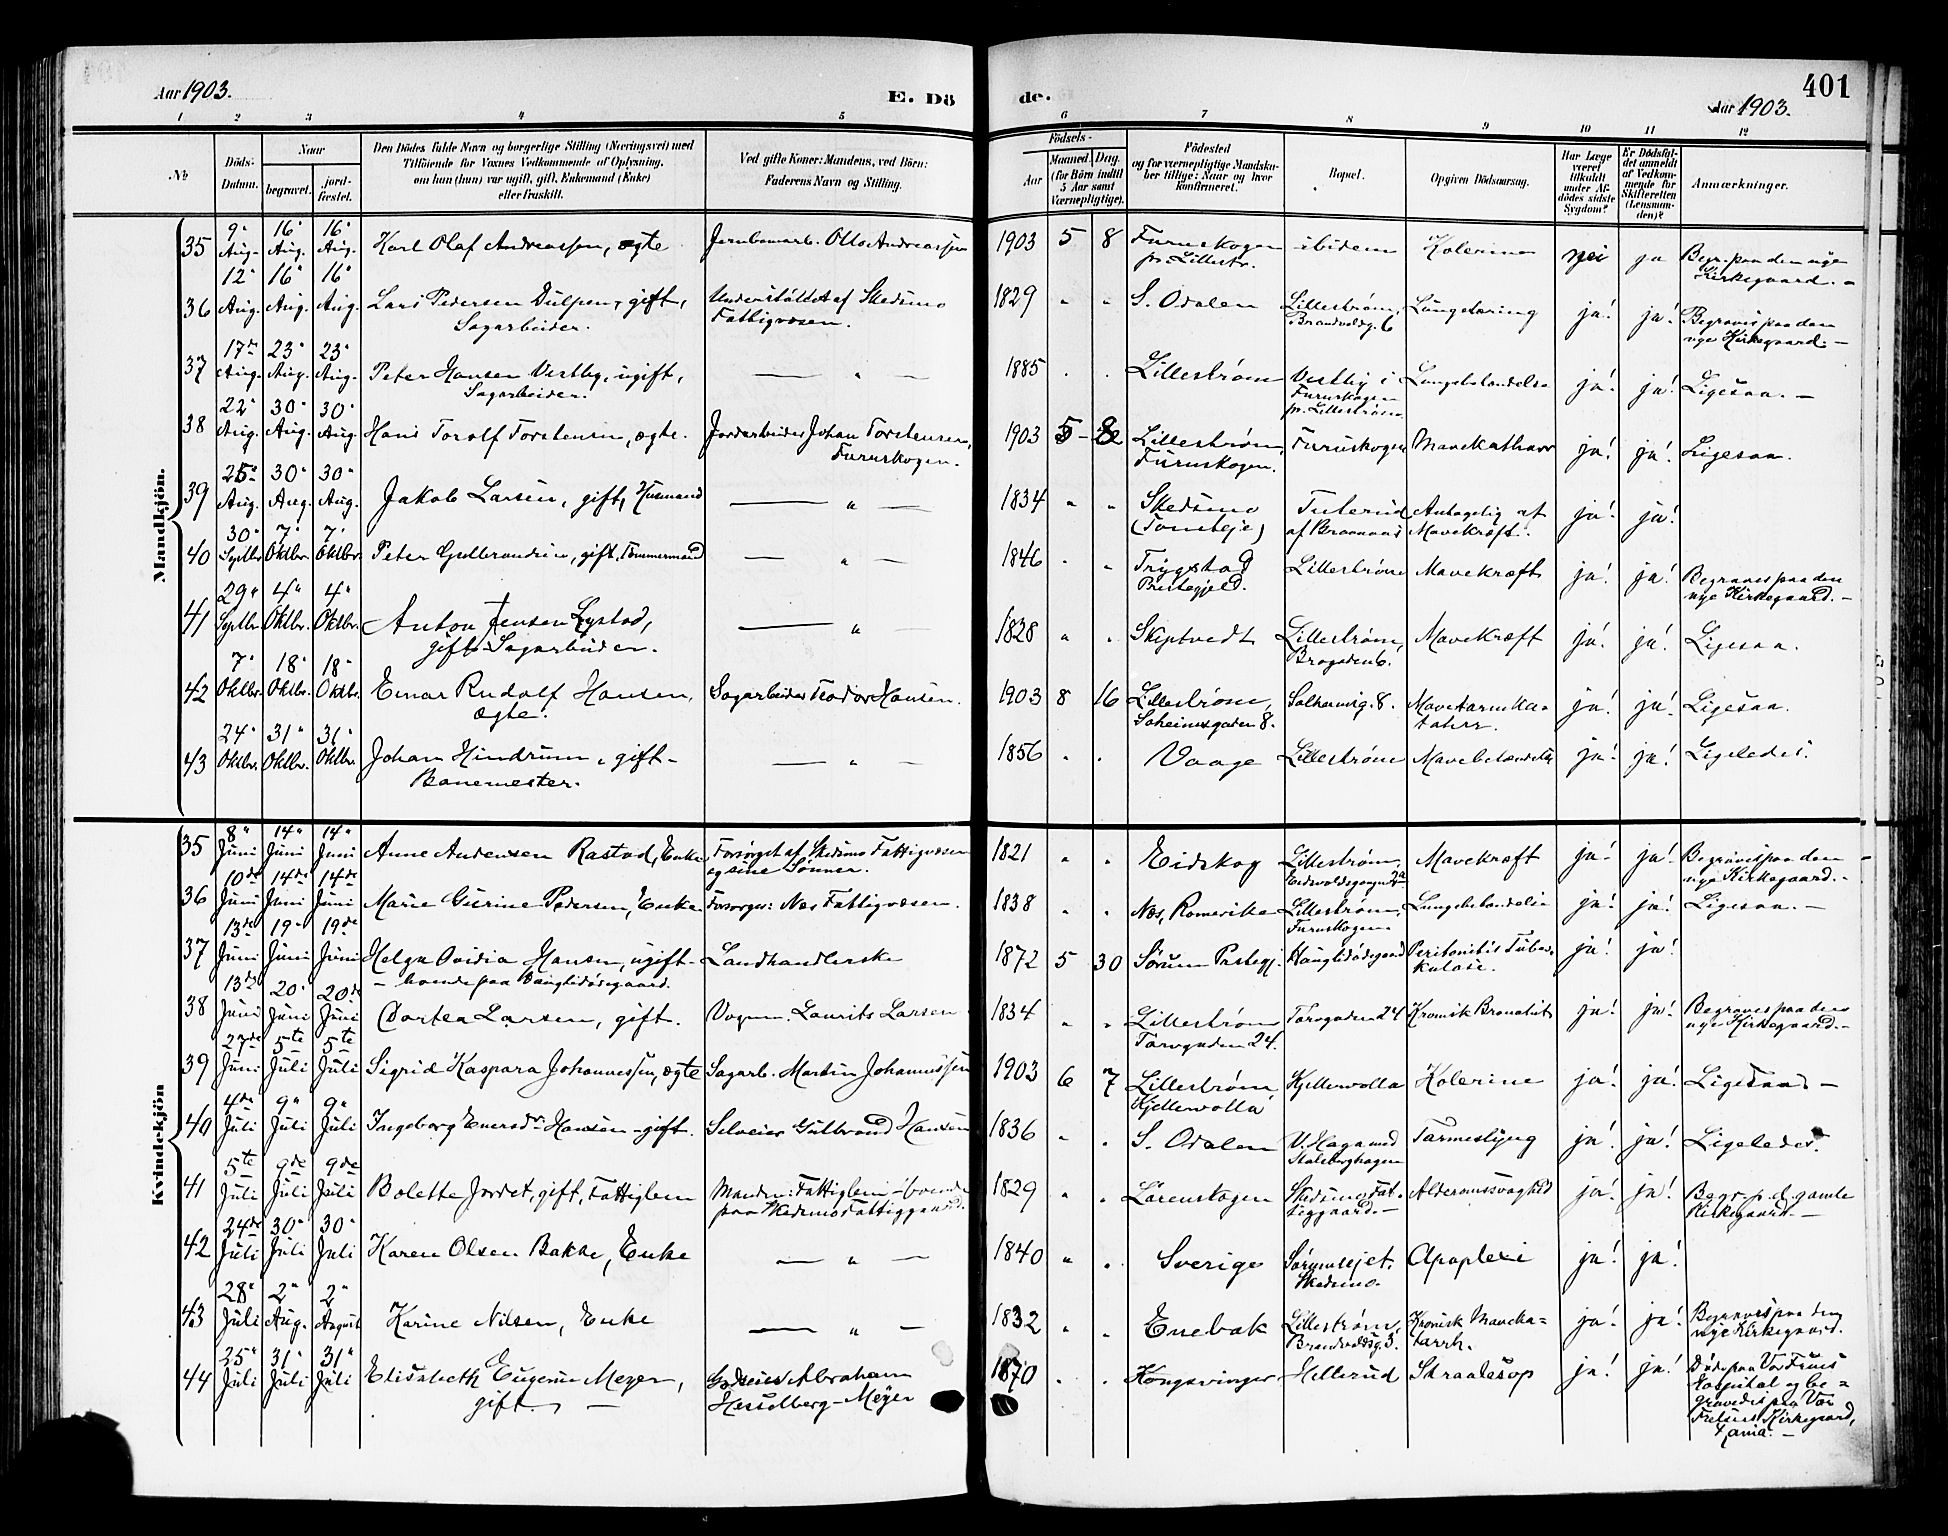 401
Aar 1903.
E. Dö
de.
Aar 1903.
1 2 3 4 5 6 7 8 9 10 11 12
№
Döds-
Datum.
Naar
begravet.
jord-
fæstet.
Den Dödes fulde Navn og borgerlige Stilling (Næringsvei) med
Tilföiende for Voxnes Vedkommende af Oplysning,
om han (hun) var ugift, gift, Enkemand (Enke)
eller fraskilt.
Ved gifte Koner: Mandens, ved Börn:
Faderens Navn og Stilling.
Födsels-
Aar
Maaned. Dag.
(for Börn indtil
5 Aar samt
Værnepligtige).
Födested
og for værnepligtige Mandska-
ber tillige: Naar og hvor
konfirmeret.
Bopæl.
Opgiven Dödsaarsag.
Har Læge
været
tilkaldt
under Af-
dödes sidste
Sygdom?
Er Dödsfal-
det anmeldt
af Vedkom-
mende for
Skifteretten
(Lensman-
den)?
Anmærkninger.
Mandkjön.
9" 16" 16"
35 Aug. Aug. Aug. Karl Olaf Andreassen, ægte Jernbanearb. Otto Andreassen 1903 5 8 Furuskogen ibidem Kolerine nei ja Begr. paa den nye
pr. Lillestr. Kirkegaard. -
12" 16" 16"
36 Aug. Aug. Aug. Lars Pedersen gift, Understøttet af Skedsmo 1829 " " S. Odalen Lillestrøm, Lungetæring ja! ja! Begraves paa den
Sagarbeider. Fattigvæsen. Brandvoldg. 6 nye Kirkegaard. -
17de 23" 23"
37 Aug. Aug. Aug. Peter Hansen Vestby, ugift, — " — 1885 " " Lillestrøm Vestby i Lungebetændelse ja! ja! Ligesaa. -
Sagarbeider. Furuskogen
pr. Lillestrøm.
22" 30" 30"
38 Aug. Aug. Aug. Hans Torolf Torstensen, ægte. Jordarbeider Johan Torstensen, 1903 5 - Lillestrøm, Furuskogen Mavekatharr ja! ja! Ligesaa.
Furuskogen. Furuskogen.
25" 30" 30"
39 Aug. Aug. Aug. Jakob Larsen, gift, Husmand — " — 1834 " " Skedsmo Tuterud Antagelig af ja! ja!
(Tomteje) af Braanaas Mavekræft.
30" 7" 7"
40 Septbr. Oktbr. Oktbr. Peter Gulbrandsen, gift, Tømmermand — " — 1846 " " Trygstad Lillestrøm Mavekræft ja! ja! Begraves paa den
Prestegjeld. nye Kirkegaard. -
29" 4" 4"
41 Septbr. Oktbr. Oktbr. Anton Jensen Lystad, — " 1828 " " Skiptvedt Lillestrøm, Mavekræft ja! ja! Ligesaa.
gift Sagarbeider. Brogaden 6.
7" 18" 18"
42 Oktbr. Oktbr. Oktbr. Einar Rudolf Hansen, Sagarbeider Teodor Hansen. 1903 8 16 Lillestrøm, Solheimsg. 8. Mavetarmka- ja! ja! Ligesaa.
ægte. Solheimsgaden 8. tahrr.
24" 31" 31"
43 Oktbr. Oktbr. Oktbr. Johan Hindrum, gift - — " — 1856 " " Vaage Lillestrøm Mavebetændelse ja! ja! Ligeledes.
Banemester.
Kvindekjön
8" 14" 14"
35 Juni Juni Juni Anne Andersen Rastad, Enke, Forsørget af Skedsmo Fattigvæsen 1821 " " Eidskog Lillestrøm, Mavekræft ja! ja! Begraves paa den
og sine Sønner. nye Kirkegaard. -
10de 14de 14de
36 Juni Juni Juni Marie Gurine Pedersen, Enke Forsørges: Næs Fattigvæsen. 1838 " " Næs, Romerike Lillestrøm, Lungebetændelse ja! ja! Ligesaa. -
Furuskogen.
13de 19" 19de
37 Juni Juni Juni Helga Ovidia Hansen, ugift - Landhandlerske 1872 5 30 Sørum Prestegj. Peritonitis Tuber- ja! ja!
- boende paa kulose.
13de 20" 20de
38 Juni Juni Juni Dortea Larsen, gift. Vognm. Laurits Larsen 1834 " " Lillestrøm Torvgaden 24 Kronisk Bronchit ja! ja! Begraves paa den
Torvgaden 24. nye Kirkegaard. -
27de 5te 5te
39 Juni Juli Juli Sigrid Kaspara Johannessen, ægte Sagarb. Martin Johannessen 1903 6 7 Lillestrøm Kjellervolla Kolerine ja! ja! Ligesaa -
Kjellervolla
4de 9" 9"
40 Juli Juli Juli Ingeborg Hansen - gift. Selveier Gulbrand Hansen 1836 " " S. Odalen V. Haga ved Tarmeslyng ja! ja! Ligeledes.
Stalsberghagen
5te 9de 9de
41 Juli Juli Juli Bolette Jordet, gift, Fattiglem Manden: Fattiglem - boende 1829 " " Lørenskogen Skedsmo Fat- Alderomssvaghed ja! ja! Begr. p. d. gamle
paa Skedsmo Fattiggaard. tiggaard. - Kirkegaard. -
24de 30" 30"
42 Juli Juli Juli Karen Olsen Bakke, Enke — " — 1840 " " Sverige Apoplexi ja! ja!
Skedsmo.
28" 2" 2"
43 Juli Aug. August Karine Nilsen, Enke — " — 1832 " " Enebak Lillestrøm, Kronisk Maveka- ja! ja! Begraves paa den
Brandvoldsg. 3. tarrh. nye Kirkegaard.
25" 31" 31"
44 Juli Juli Juli Elisabeth Eugenie Meyer, Godseier Abraham 1870 " " Kongsvinger Hellerud Straalesop ja! ja! Døde paa Vor Frues
gift. — Hesselberg-Meyer Hospital og be-
gravedes paa Vor
Frelsers Kirkegaard,
Kr.ania. -